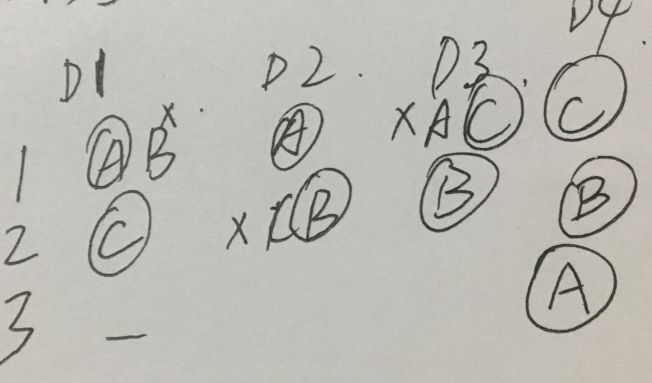 D1 D2 . D3 . D4 .
1 A B x . A x A C C
2 C x C B B B
3 — A